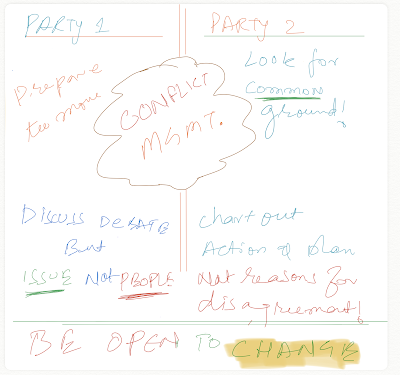 PARTY 1
PARTY 2
Prepare
to move
CONFLICT
MGMT.
Look for
COMMON
ground!
DISCUSS DEBATE
But
ISSUE NOT PEOPLE
Chart out
Action of plan
Not reasons for
disagreement!
BE OPEN TO CHANGE